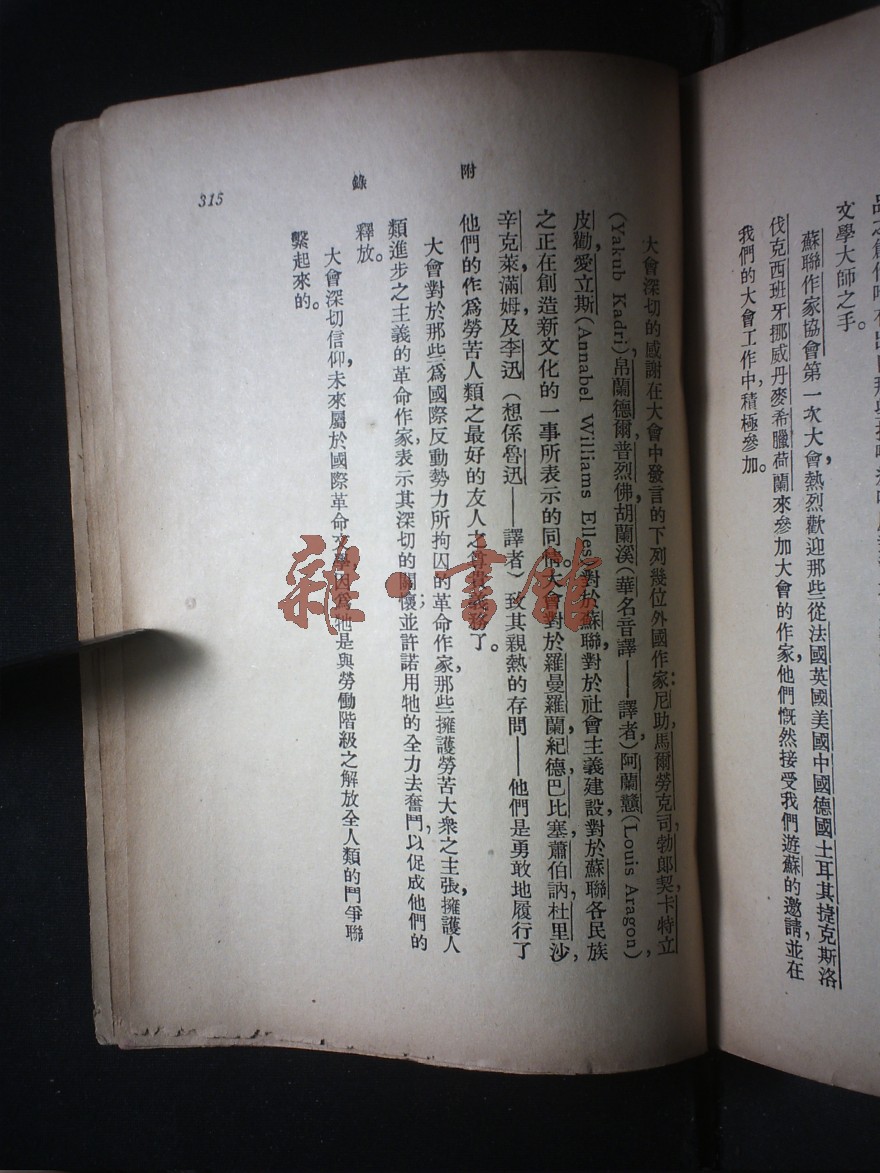 文學大師之手。
蘇聯作家協會第一次大會,熱烈歡迎那些從法國英國美國中國德國土耳其捷克斯洛
伐克西班牙挪威丹麥希臘荷蘭來參加大會的作家,他們慨然接受我們遊蘇的邀請,並在
我們的大會工作中,積極參加。
附錄
315
大會深切的感謝在大會中發言的下列幾位外國作家:尼助,馬爾勞克司,勃郎契,卡特立,
(Yakub Kadri),帛蘭德爾,普烈佛,胡蘭溪(華名音譯——譯者)阿蘭戇(Louis Aragon),
皮勸,愛立斯(Annabel Williams Elles)對於蘇聯,對於社會主義建設,對於蘇聯各民族
之正在創造新文化的一事所表示的同情。大會對於羅曼羅蘭,紀德,巴比塞,蕭伯訥,杜里沙,
辛克萊,滿姆,及李迅(想係魯迅——譯者)致其親熱的存問——他們是勇敢地履行了
他們的作爲勞苦人類之最好的友人之尊貴義務了。
大會對於那些爲國際反動勢力所拘囚的革命作家,那些擁護勞苦大衆之主張,擁護人
類進步之主義的革命作家,表示其深切的關懷;並許諾用牠的全力去奮鬥,以促成他們的
釋放。
大會深切信仰未來屬於國際革命文學,因爲牠是與勞働階級之解放全人類的鬥爭聯
繫起來的。
雜·書館